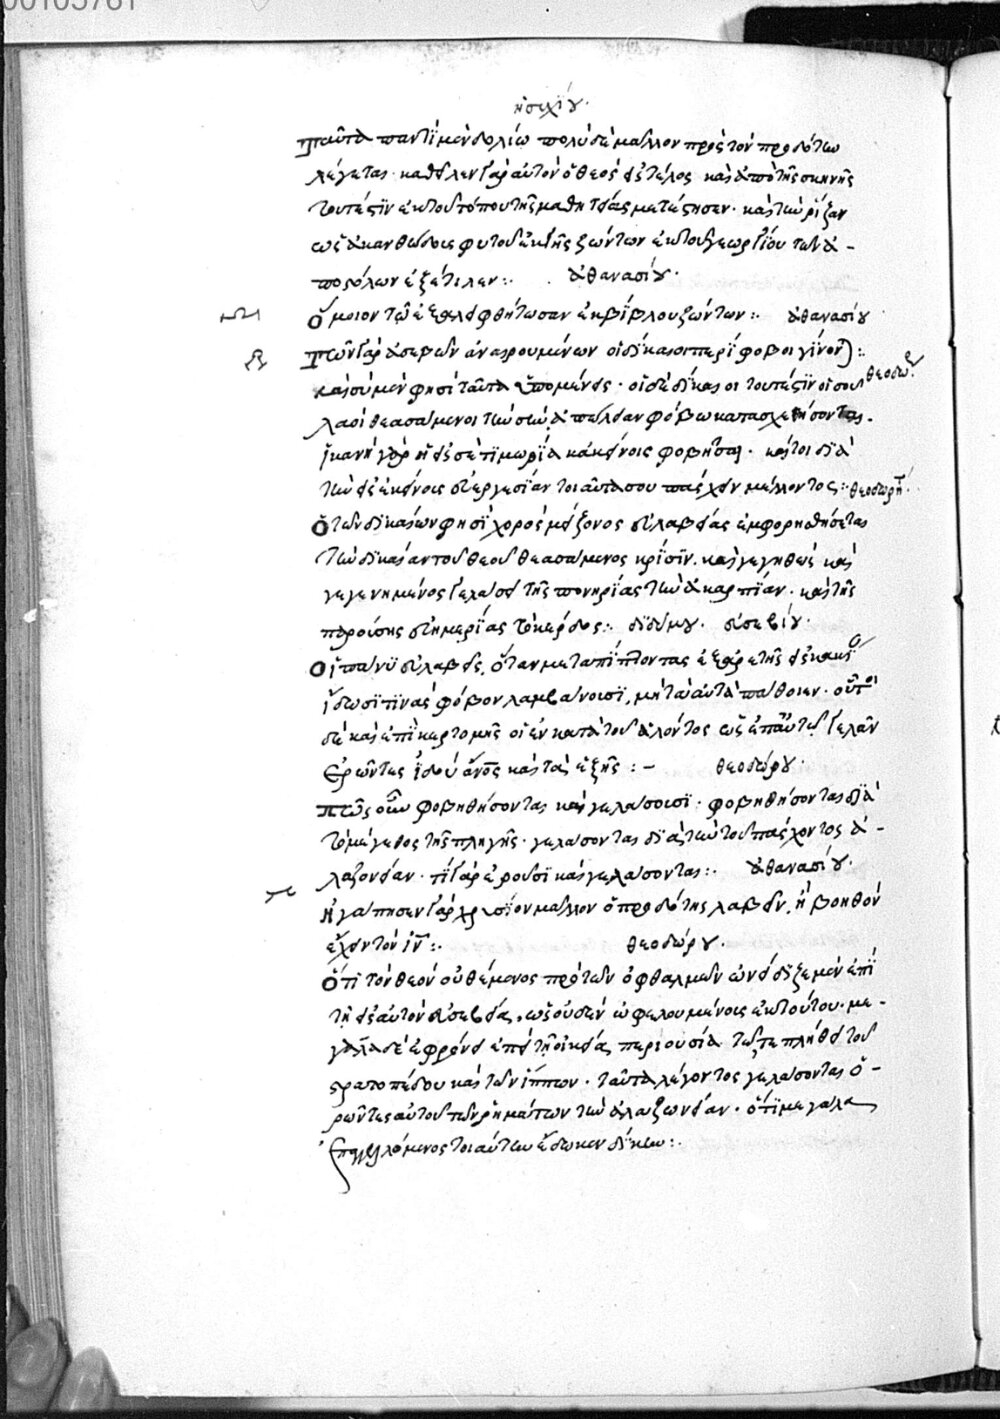 00105761
ἡσυχίου·
Ταῦτα παντὶ μὲν δολίω πολὺ δὲ μᾶλλον πρὸς τὸν προδότην
λέγεται· καθεῖλεν γὰρ αὐτὸν ὁ θεὸς εἰς τέλος καὶ ἀπὸ τῆς σκηνῆς
τουτέστιν ἐκ τοῦ τόπου τῆς μαθητείας μετέστησεν· καὶ τὴν ρίζαν
ὡς ἀκανθώδους φυτοῦ ἐκ γῆς ζώντων ἐκ τοῦ γεωργίου τῶν ἀ-
ποστόλων ἐξέτιλεν:· ἀθανασίου·
Ὅμοιον τῶ ἐξαλειφθήτωσαν ἐκ βίβλου ζώντων:· ἀθανασίου
Τῶν γὰρ ἀσεβῶν ἀναιρουμένων οἱ δίκαιοι περίφοβοι γίνον):·
καὶ σὺ μὲν φησὶ ταῦτα ὑπομένεις· οἱ δὲ δίκαιοι τουτέστιν οἱ σοὶ θεοδώ
λαοὶ θεασάμενοι τὴν σὴν ἀπώλειαν φόβω κατασχεθήσονται.
ἱκανὴ γὰρ ἡ εἰς σὲ τιμωρία κἀκείνοις φοβῆσαι· καίτοι διὰ
τὴν εἰς ἐκείνοις εὐεργεσίαν τοιαῦτα σου πάσχειν μέλλοντος:· θεοδωρήτ
Ὁ τῶν δικαίων φησὶ χορὸς μείζονος εὐλαβείας ἐμφορηθήσεται
τὴν δικαίαν τοῦ θεοῦ θεασάμενος κρίσιν. καὶ γεγηθὼς καὶ
γεγενημένος γελάσει τῆς πονηρίας τὴν ἀκαρπίαν· καὶ τῆς
παρούσης εὐημερίας τὸ κέρδος:· διδύμου· εὐσεβίου·
Οἱ πάνυ εὐλαβεῖς, ὅταν μεταπίπτοντας ἐξ ἀρετῆς εἰς κακί
ἴδωσι τινὰς φόβον λαμβάνουσι, μὴ τὰ αὐτὰ πάθοιεν· οὗτοι
δὲ καὶ ἐπικερτομῆς οἱ ἐν κατὰ τοῦ ἁλόντος ὡς ἐπ' αὐτῶ γελᾶν
ἐρῶντες ἰδοὺ ἄνος καὶ τὰ ἑξῆς:– θεοδώρου·
πῶς οὖν φοβηθήσονται καὶ γελάσουσι· φοβηθήσονται διὰ
τὸ μέγεθος τῆς πληγῆς· γελάσονται δι' αὐτὴν τοῦ πάσχοντος ἀ-
λαζονείαν· τί γὰρ ἐροῦσι καὶ γελάσονται:· ἀθανασίου·
Ἠγάπησεν γὰρ χρυσίον μᾶλλον ὁ προδότης λαβεῖν, ἢ βοηθὸν
ἔχειν τὸν ἰν:· θεοδώρου·
Ὅτι τὸν θεὸν οὐ θέμενος πρὸ τῶν ὀφθαλμῶν ὢν ἔδειξε μὲν ἐπὶ
τῆ εἰς αὐτὸν εὐσεβείας, ὡς οὐδὲν ὠφελουμένοις ἐκ τούτου. με-
γάλα δὲ ἐφρόνει ἐπὶ τῆ οἰκεία περιουσία τῶ τε πλήθει τοῦ
στρατοπέδου καὶ τῶν ἵππων· ταῦτα λέγοντος γελάσονται ὁ-
ρῶντες αὐτοῦ τῶν ρημάτων τὴν ἀλαζωνείαν· ὅτι μεγάλα
ἐπαγγειλάμενος τοιαύτην ἔδωκεν δίκην:·